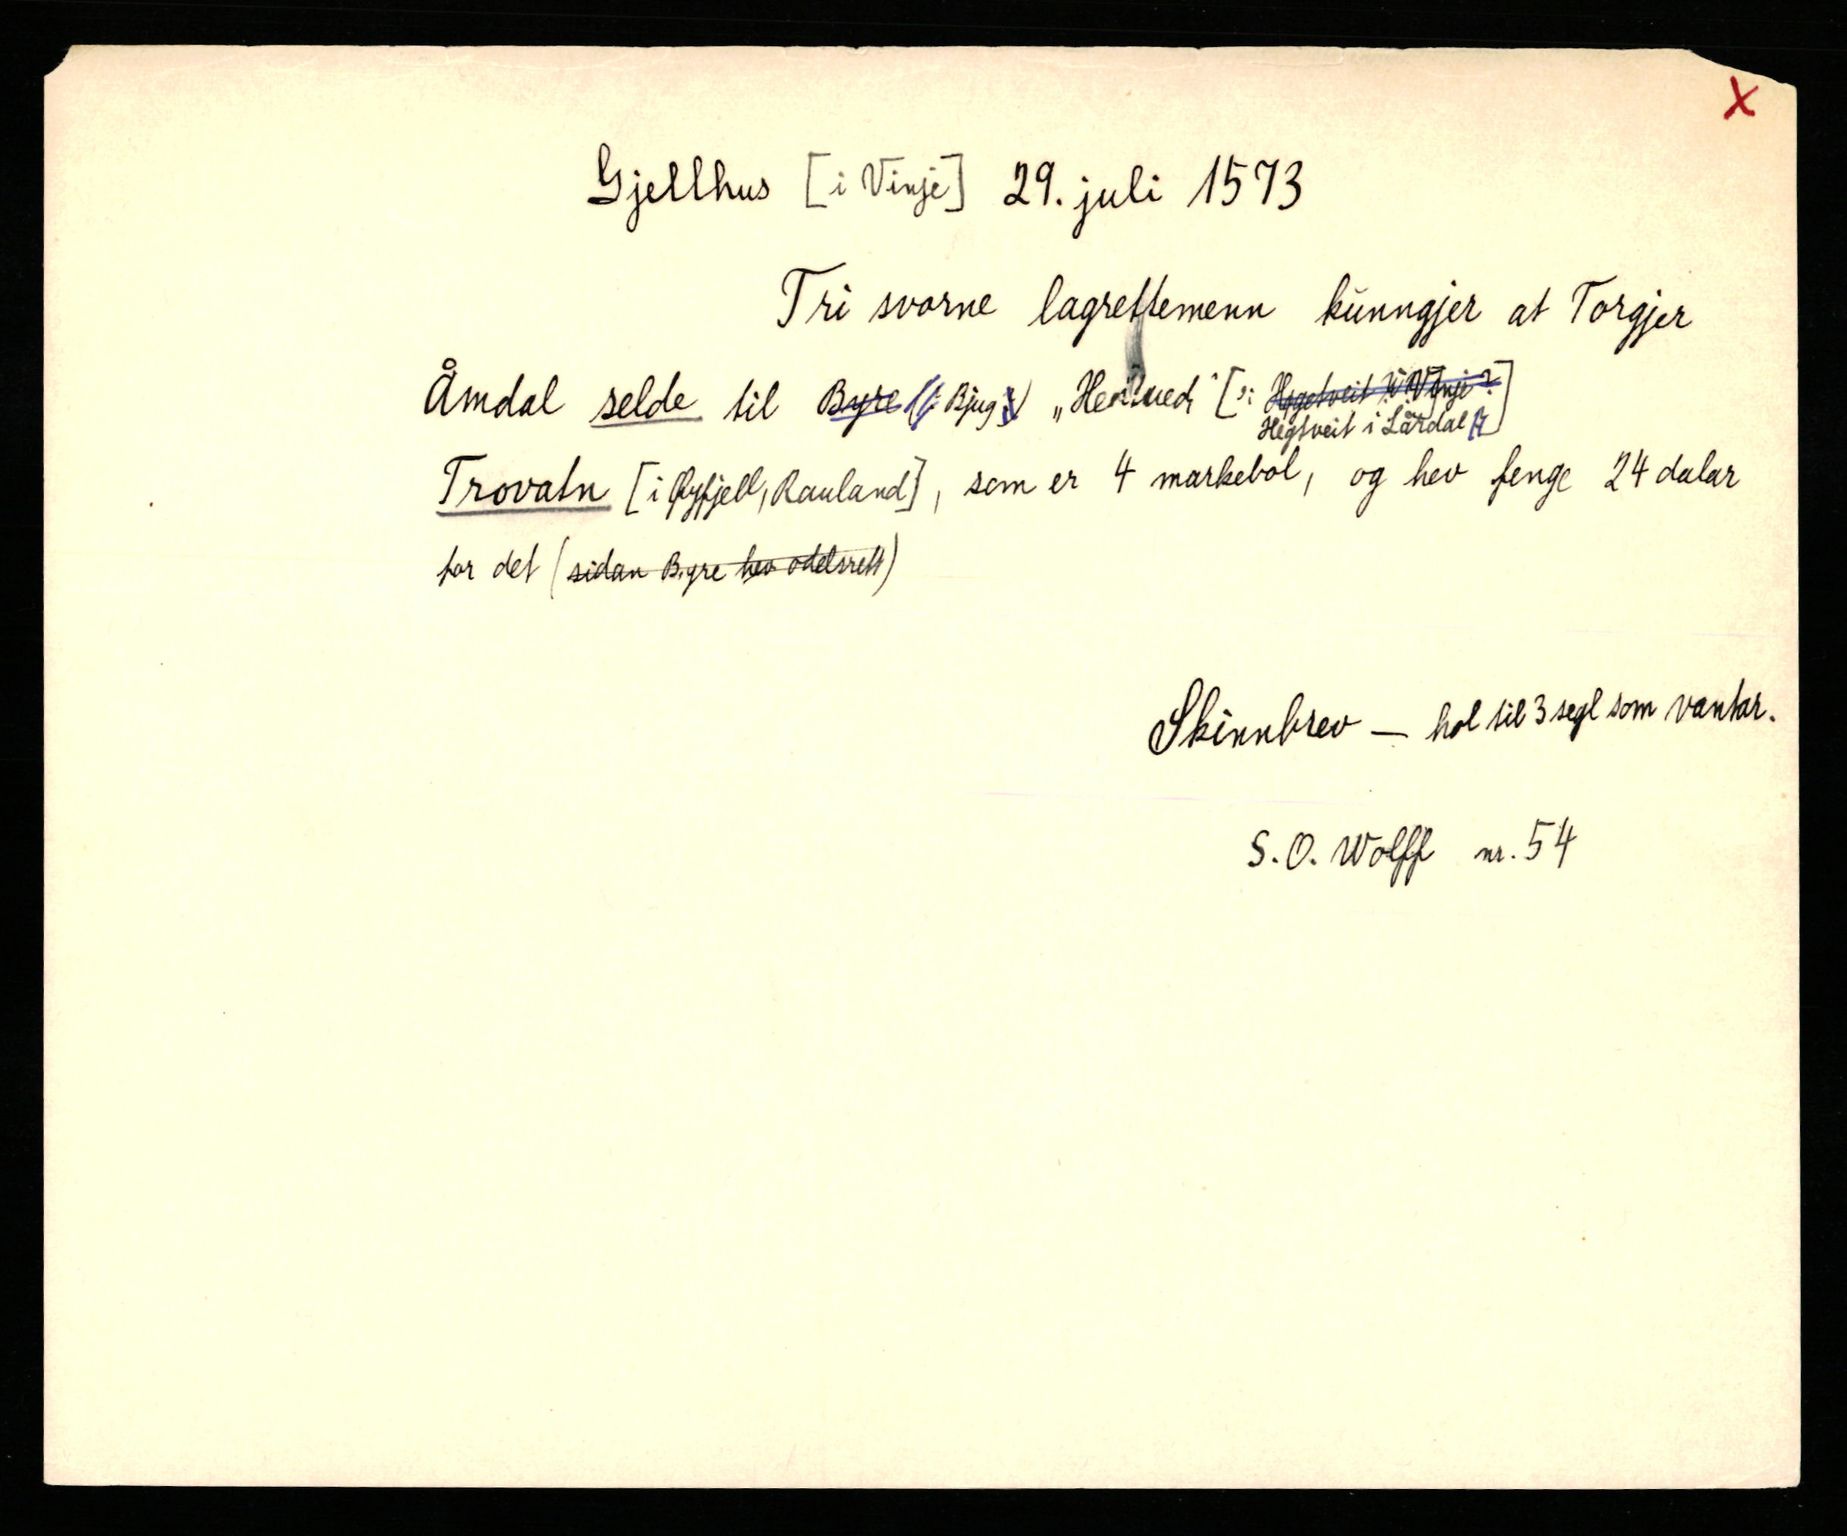 X
Gjellhus [i Vinje] 29. juli 1573
Tri svorne lagrettemenn kunngjer at Torgjer
Åmdal selde til Byre (: Bjug :) „ [ɔ: Høgetveit i Vinje?
Hegtveit i Lårdal]
Trovatn [i Øyfjell, Rauland], som er 4 markebol, og hev fenge 24 dalar
for det (sidan Byre hev odelsrett)
Skinnbrev — hol til 3 segl som vantar.
S. O. Wolff nr. 54